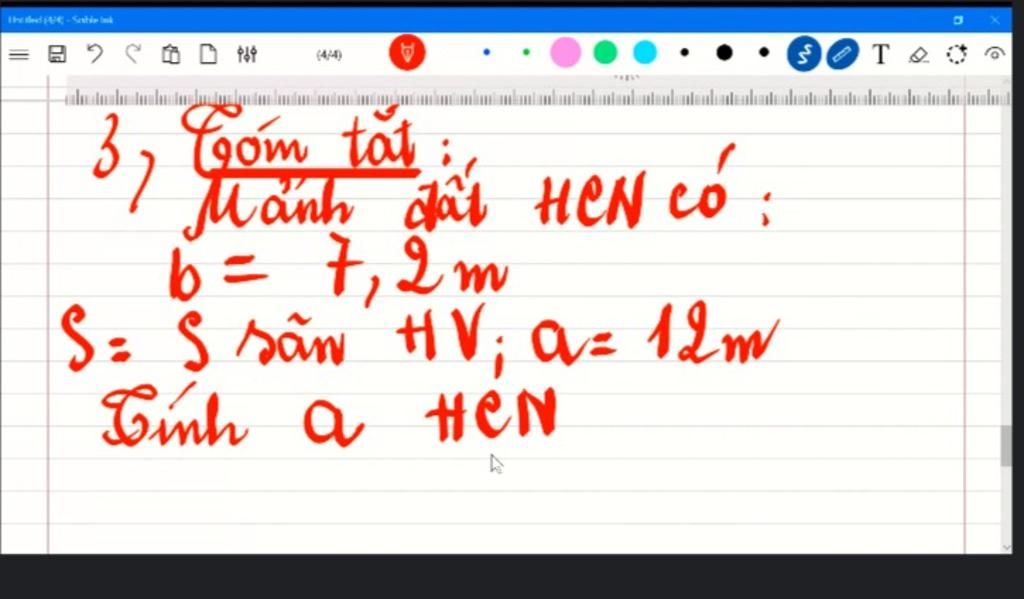 Untitled (4/4) - Scrble Ink
(4/4)
T
3, Tóm tắt:
Mảnh đất HCN có:
b = 7,2m
S = S sân HV; a = 12m
Tính a HCN